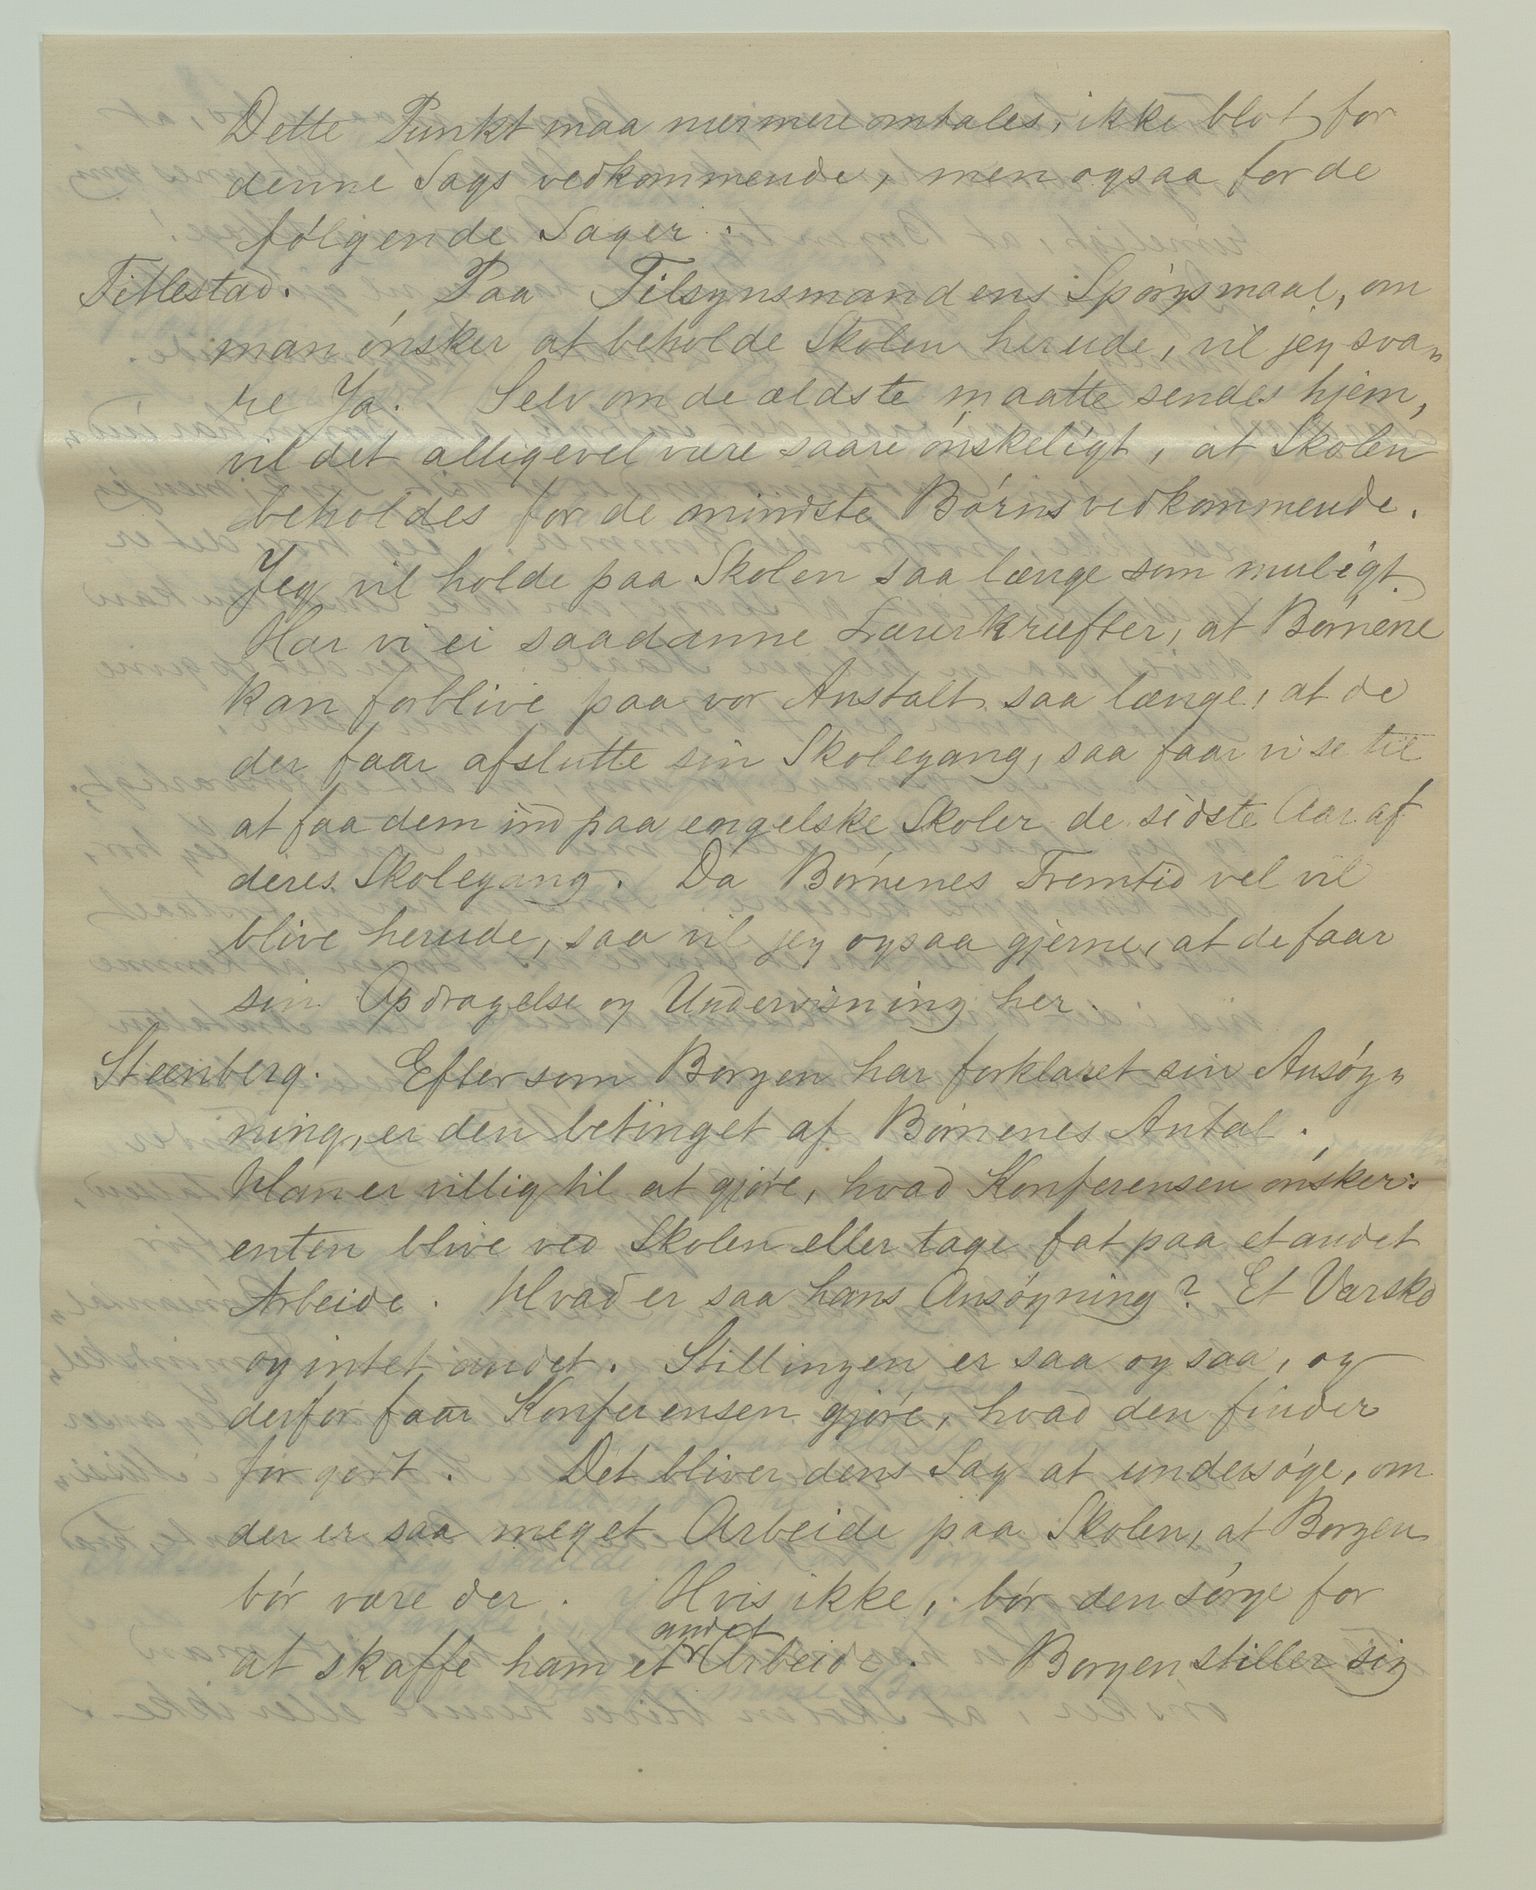 Dette Punkt maa nærmere omtales, ikke blot for
denne Sags vedkommende, men ogsaa for de
følgende Sager.
Titlestad. Paa Tilsynsmandens Spørgsmaal, om
man ønsker at beholde Skolen herude, vil jeg sva„
re Ja. Selv om de ældste maatte sendes hjem,
vil det alligevel være saare ønskeligt, at Skolen
beholdes for de mindste Børns vedkommende.
Jeg vil holde paa Skolen saa længe som muligt.
Har vi ei saadanne Lærerkræfter, at Børnene
kan forblive paa vor Anstalt saa længe, at de
der faar afslutte sin Skolegang, saa faar vi se til
at faa dem ind paa engelske Skoler de sidste Aar af
deres Skolegang. Da Børnenes Fremtid vel vil
blive herude, saa vil jeg ogsaa gjerne, at de faar
sin Opdragelse og Undervisning her.
Steenberg. Eftersom Borgen har forklaret sin Ansøg„
ning, er den betinget af Børnenes Antal.
Han er villig til at gjøre, hvad Konferensen ønsker:
enten blive ved Skolen eller tage fat paa et andet
Arbeide. Hvad er saa hans Ansøgning? Et Varsko
og intet andet. Stillingen er saa ogsaa, og
derfor faar Konferensen gjøre, hvad den finder
for godt. Det bliver dens Sag at undersøge, om
der er saa meget Arbeide paa Skolen, at Borgen
bør være der. Hvis ikke, bør den sørge for
at skaffe ham et andet Arbeide. Borgen stiller sig